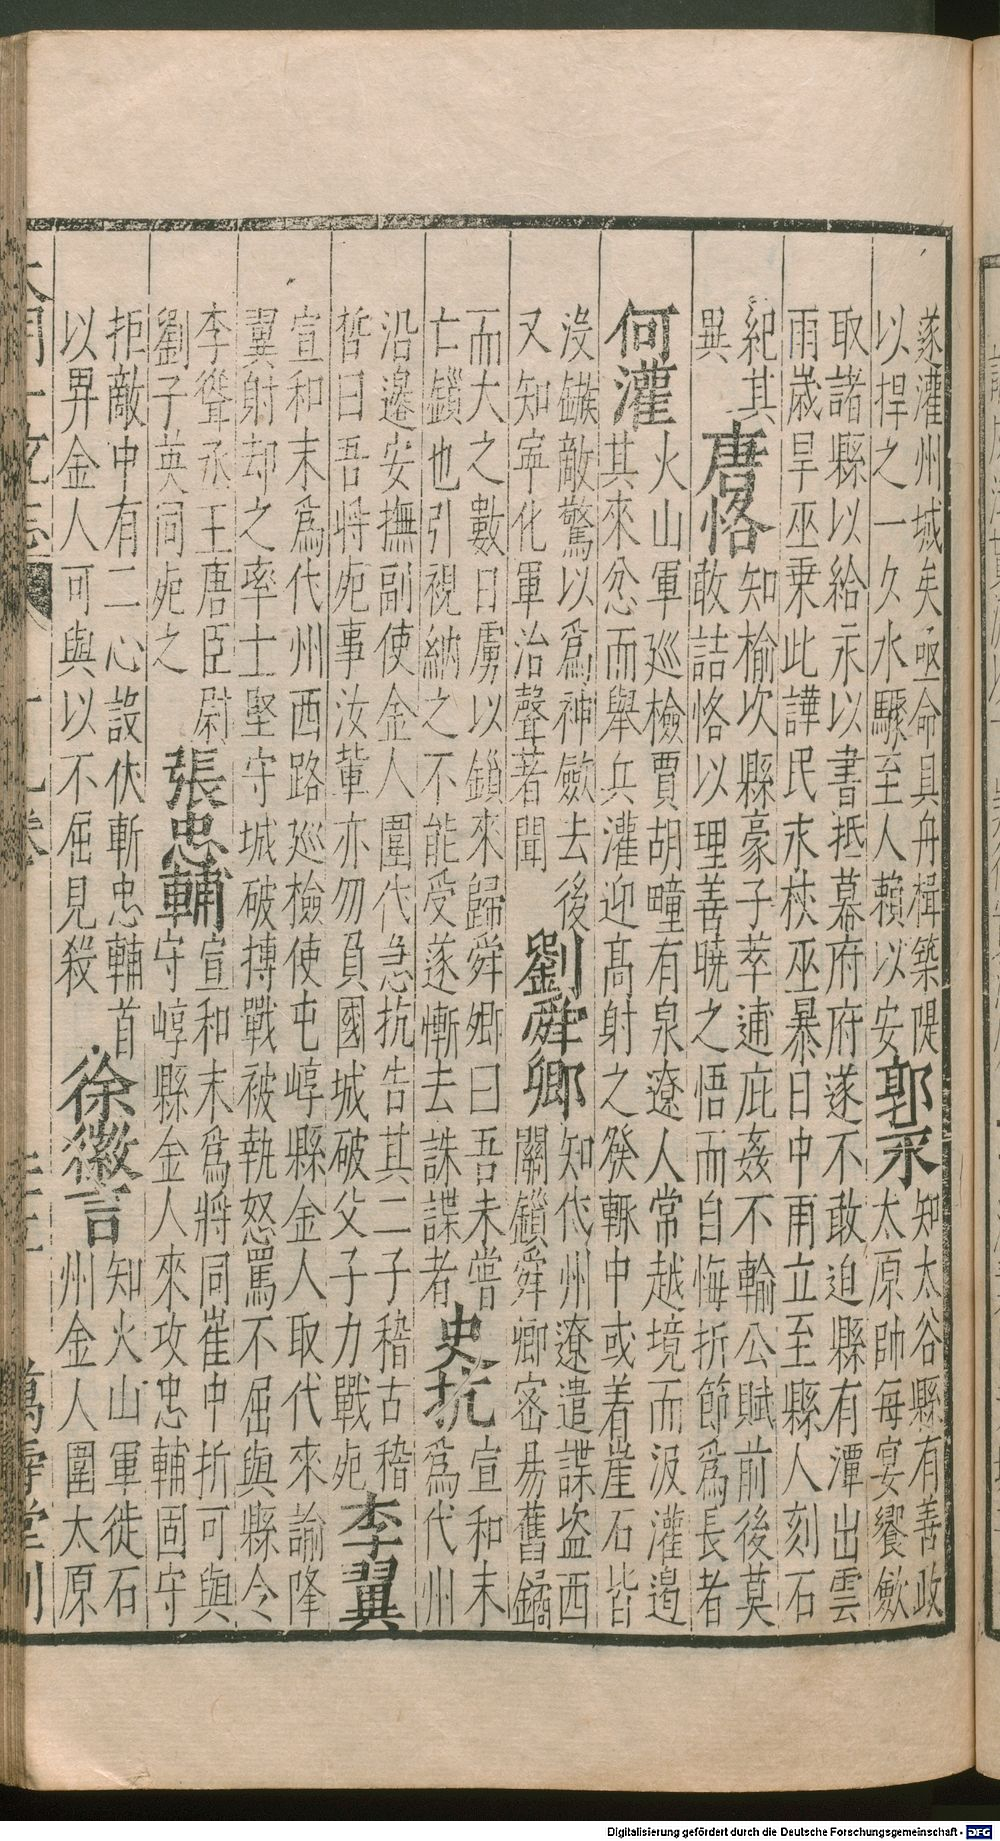 遂灌州城矣亟命具舟楫築隄
以捍之一夕水驟至人賴以安
郭永
知太谷縣有善政
太原帥每宴饗歛
取諸縣以給永以書抵幕府府遂不敢迫縣有潭出雲
雨歲旱巫乗此譁民永杖巫暴日中雨立至縣人刻石
紀其
異
唐恪
知榆次縣豪子萃逋庇姦不輸公賦前後莫
敢詰恪以理善曉之悟而自悔折節爲長者
何灌
火山軍巡檢賈胡疃有泉遼人常越境而汲灌邉
其來忿而舉兵灌迎髙射之發輙中或着崖石皆
没鏃敵驚以爲神歛去後
又知寧化軍治聲著聞
劉舜卿
知代州遼遣諜盗西
關鎖舜卿宻易舊鐍
而大之數日虜以鎖來歸舜卿曰吾未嘗
亡鎖也引視納之不能受遂慚去誅諜者
史抗
宣和末
爲代州
沿邊安撫副使金人圍代急抗告其二子稽古稽
哲曰吾將死事汝輩亦勿負國城破父子力戰死
李翼
宣和末爲代州西路巡檢使屯崞縣金人取代來諭降
翼射却之率士堅守城破搏戰被執怒罵不屈與縣令
李聳丞王唐臣尉
劉子英同死之
張忠輔
宣和末爲將同崔中折可與
守崞縣金人來攻忠輔固守
拒敵中有二心設伏斬忠輔首
以畀金人可與以不屈見殺
徐徽言
知火山軍徙石
州金人圍太原
大明一統志
萬壽堂刊
Digitalisierung gefördert durch die Deutsche Forschungsgemeinschaft - DFG